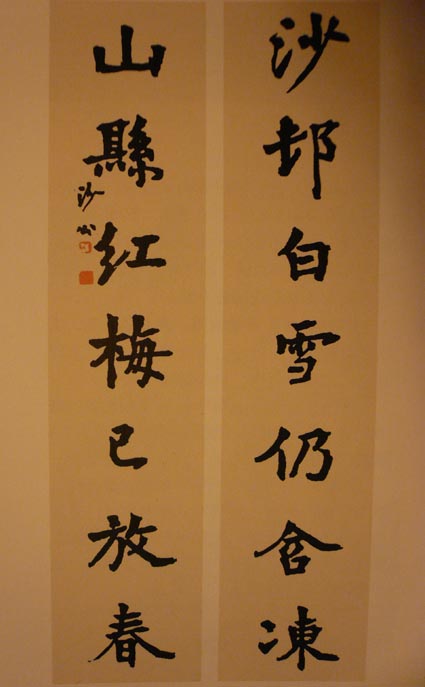 沙邨白雪仍含凍
山縣紅梅已放春
沙